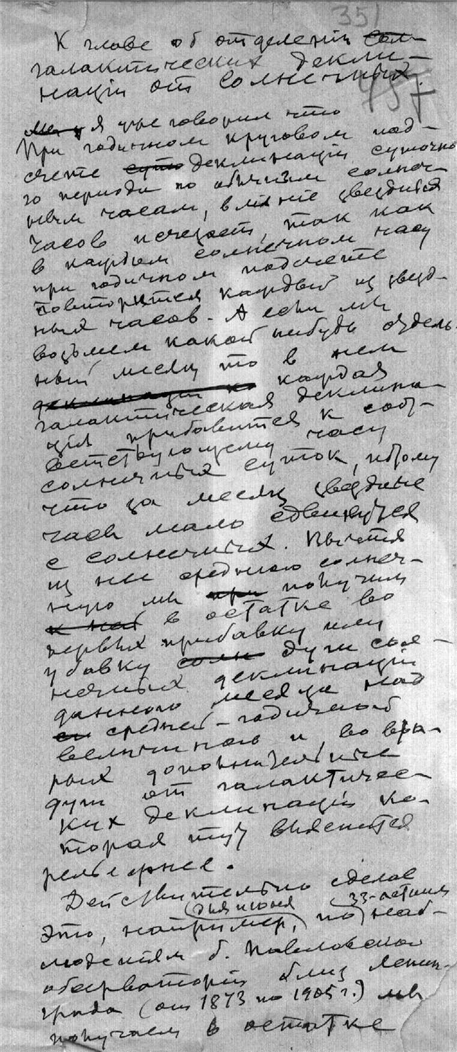 351
К главе об отделенiи сол-
галактических декли-
нацiй от солнечных
457
Я уже говорил что
При годичном круговом под-
счете суто деклинацiй суточно-
го периода по обычным солнеч-
ным часам, влiянiе звездных
часов исчезает, так как
в каждом солнечном часу
при годичном подсчете
повторятся каждый из звезд-
ных часов. А если мы
возьмем какой нибудь отдель-
ный месяц то в нем
деклинацiи ко каждая
галактическая деклина-
цiя прибавится к соот-
ветствующему часу
солнечных суток, потому
что за месяц звездные
часы мало сдвинутся
с солнечных. Вычтя
из нее среднюю солнеч-
ную мы при получим
в остатке во
первых прибавку или
убавку солн дуги сол-
нечных деклинацiй
данного месяца над
средней-годичной
величиною и во вто-
рых дополнительные
дуги от галактичес-
ких деклинацiй ко-
торая тут выяснится
рельефнее.
Действительно сделав
для июня 33-летним
это, например, по наб-
людениям б. Павловской
обсерваторiи близ Ленин-
града (от 1873 по 1905 г.) мы
получаем в остатке